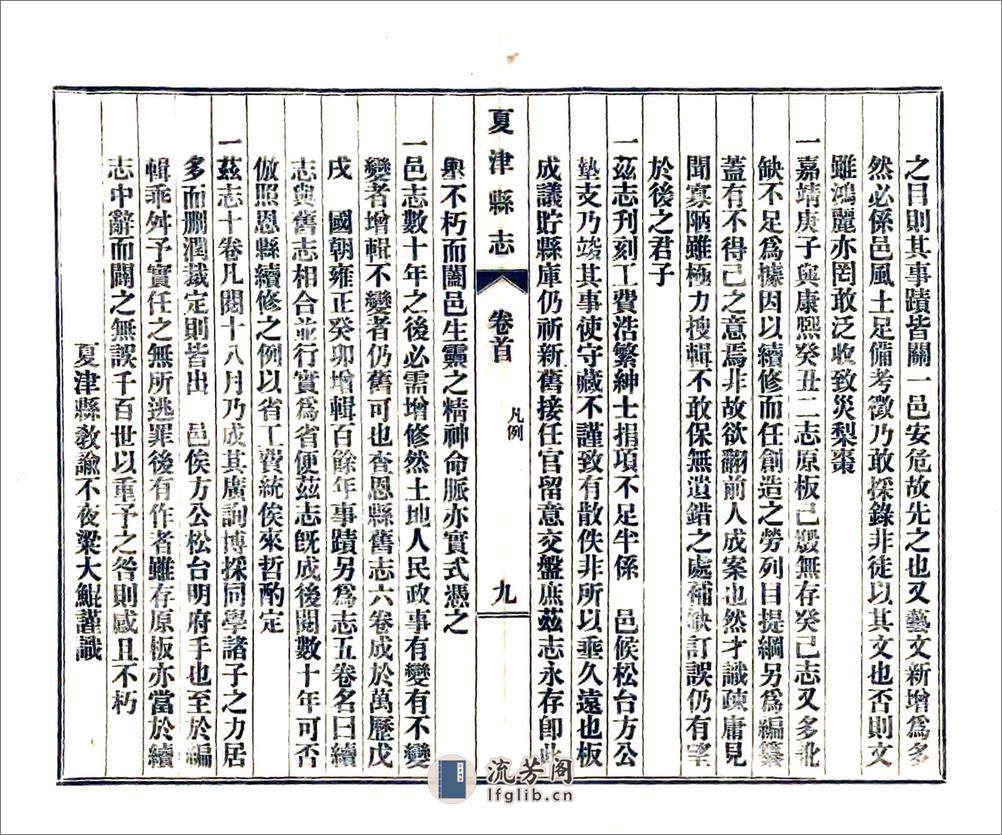 之目則其事蹟皆關一邑安危故先之也又藝文新增爲多
然必係邑風土足備考徵乃敢採錄非徒以其文也否則文
雖鴻麗亦罔敢泛收致災梨棗
一嘉靖庚子與康熙癸丑二志原板已燬無存癸已志又多訛
缺不足爲據因以續修而任創造之勞列目提綱另爲編纂
蓋有不得已之意焉非故欲翻前人成案也然才識疎庸見
聞寡陋雖極力搜輯不敢保無遺錯之處補缺訂誤仍有望
於後之君子
一茲志刋刻工費浩繁紳士捐項不足半係 邑候松台方公
墊支乃竣其事使守藏不謹致有散佚非所以垂久遠也板
成議貯縣庫仍祈新舊接任官留意交盤庶茲志永存卽此
夏津縣志 卷首 凡例 九
舉不朽而闔邑生靈之精神命脈亦實式憑之
一邑志數十年之後必需增修然土地人民政事有變有不變
變者增輯不變者仍舊可也查恩縣舊志六卷成於萬歷戊
戌 國朝雍正癸卯增輯百餘年事蹟另爲志五卷名曰續
志與舊志相合並行實爲省便茲志旣成後閱數十年可否
倣照恩縣續修之例以省工費統俟來哲酌定
一茲志十卷凡閱十八月乃成其廣詢博採同學諸子之力居
多而刪潤裁定則皆出 邑侯方公松台明府手也至於編
輯乖舛予實任之無所逃罪後有作者雖存原板亦當於續
志中辭而闢之無誤千百世以重予之咎則感且不朽
夏津縣敎諭不夜梁大鯤謹識
流芳阁
lfglib.cn